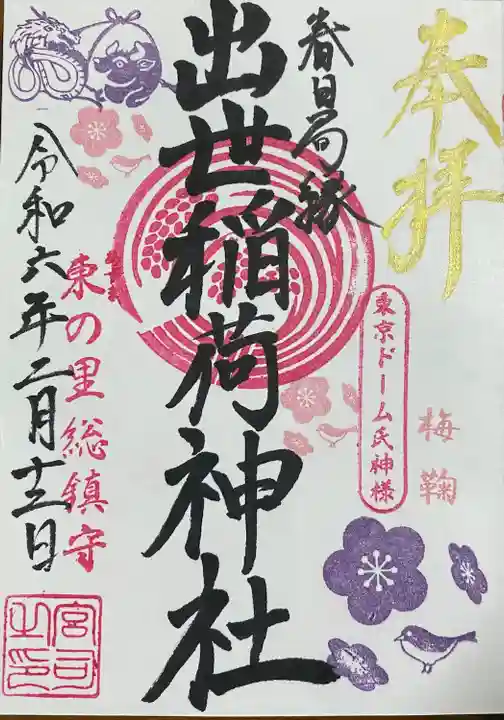 奉拝
梅鞠
東京ドーム氏神様
春日局縁
出世稲荷神社
東の里総鎮守
令和六年二月十三日
宮司之印